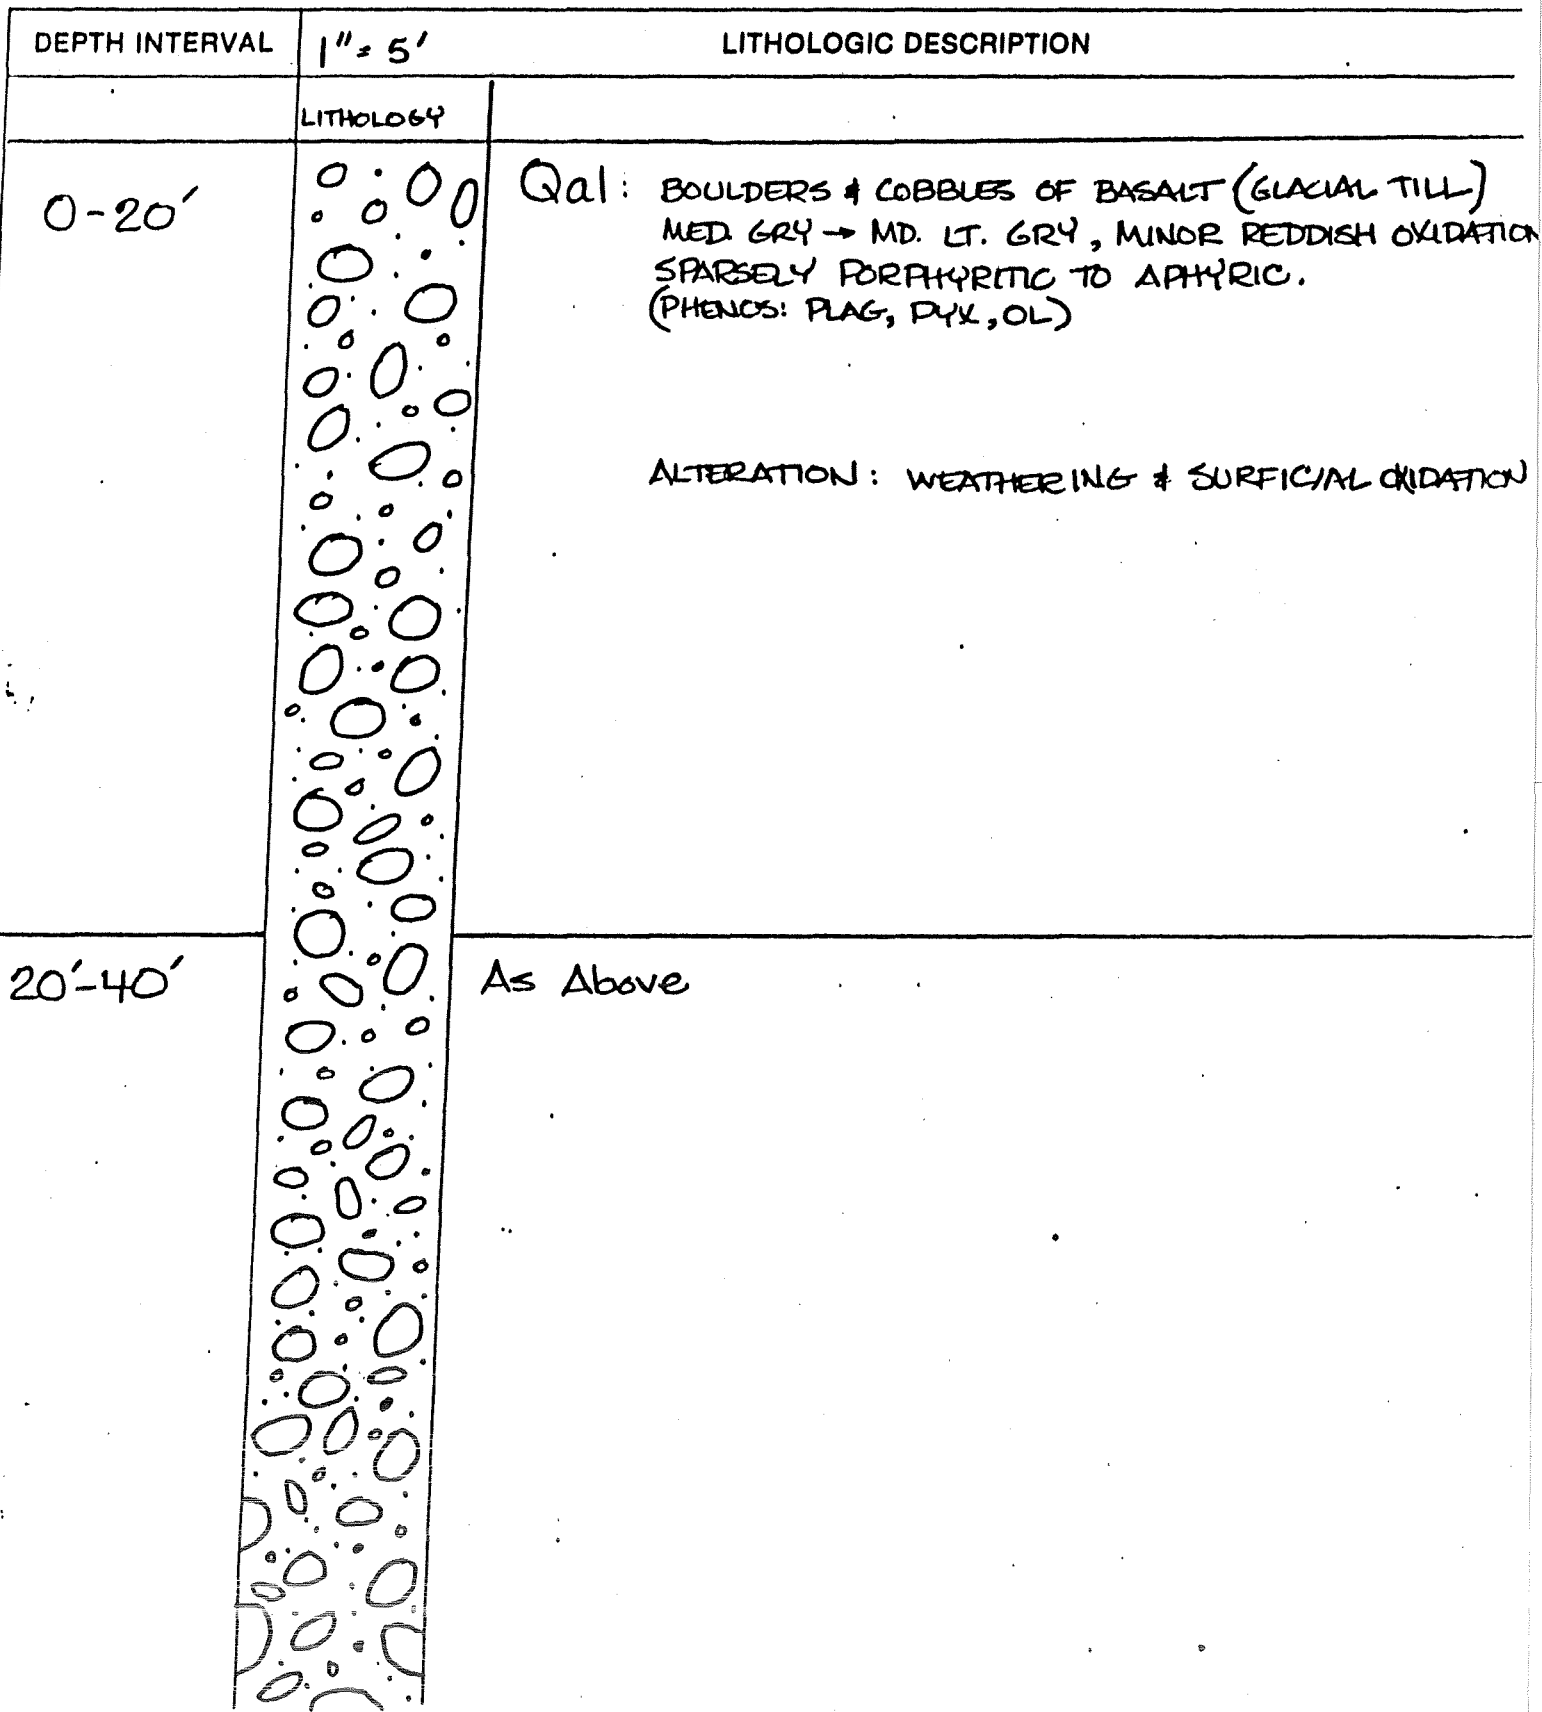 DEPTH INTERVAL 1" = 5' LITHOLOGIC DESCRIPTION
LITHOLOGY
0-20' Qal: BOULDERS & COBBLES OF BASALT (GLACIAL TILL)
MED. GRY → MD. LT. GRY, MINOR REDDISH OXIDATION
SPARSELY PORPHYRITIC TO APHYRIC.
(PHENOS: PLAG, PYX, OL)
ALTERATION: WEATHERING & SURFICIAL OXIDATION
20'-40' As Above